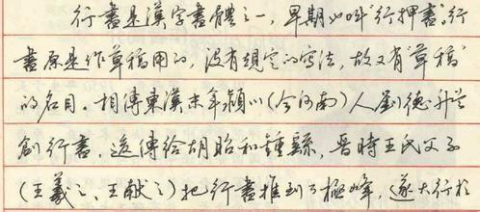 行書是漢字書體之一，早期也叫“行押書”，行
書原是作草稿用的，没有規定的寫法，故又有“草稿”
的名目。相傳東漢末年潁川（今河南）人劉德升首
創行書，遞傳給胡昭和鍾繇，晋時王氏父子
（王羲之、王献之）把行書推到了極峰，遂大行於